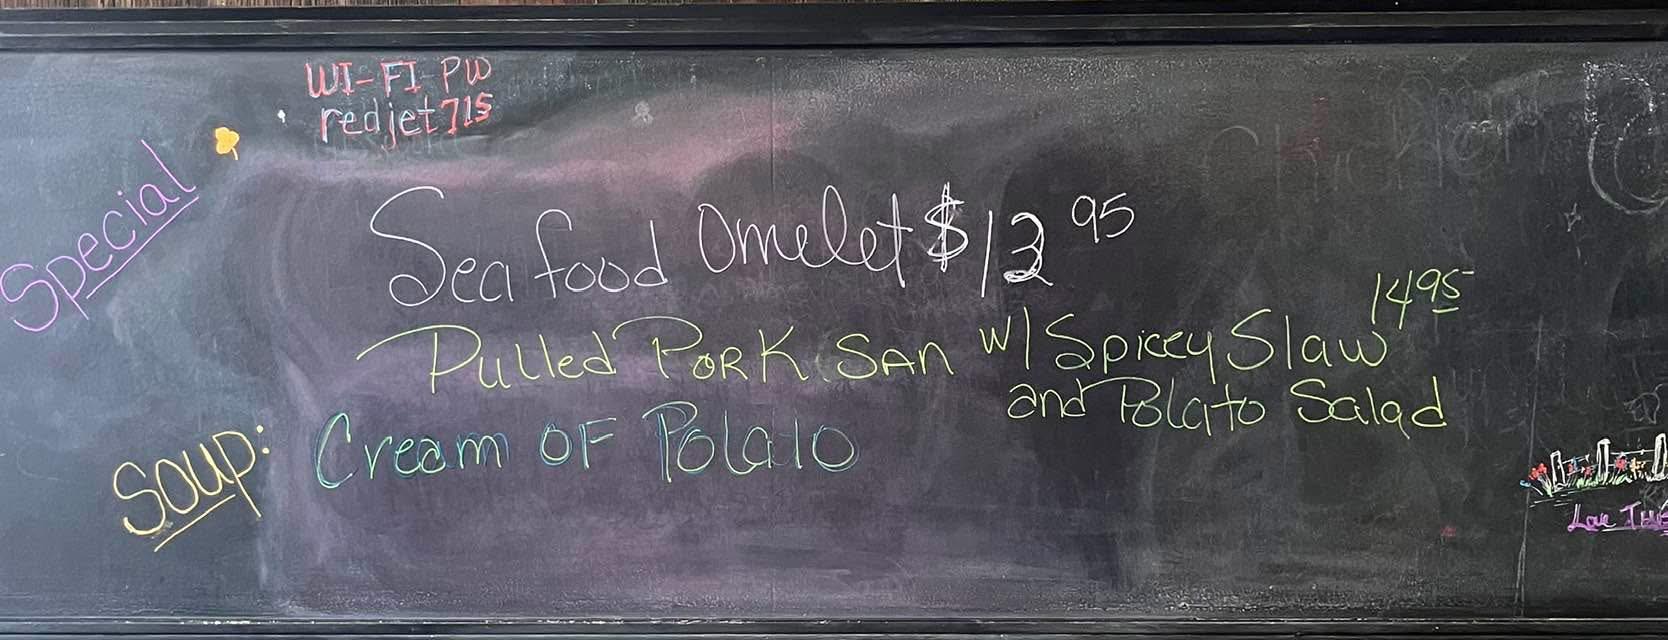 WI-FI PW
redjet715
Special
Seafood Omelet $13 95
Pulled PORK SAN w/ Spicey Slaw 14 95
and Potato Salad
Soup: Cream OF Potato
Love This